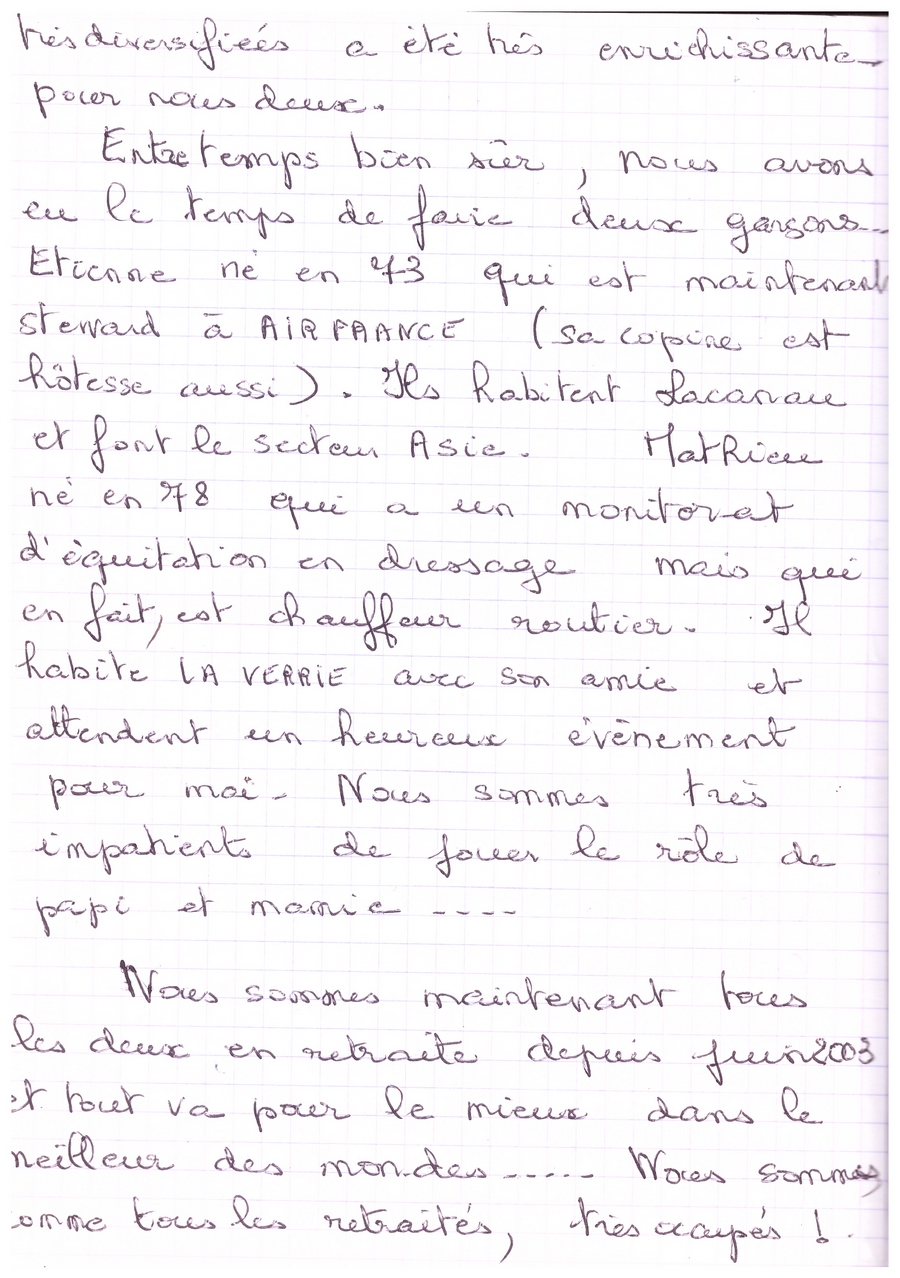 très diversifiées a été très enrichissante
pour nous deux.
Entretemps bien sûr, nous avons
eu le temps de faire deux garçons..
Etienne né en 73 qui est maintenant
steward à AIR FRANCE (sa copine est
hôtesse aussi). Ils habitent Lacanau
et font le secteur Asie. Mathieu
né en 78 qui a un monitorat
d'équitation en dressage mais qui
en fait, est chauffeur routier. Il
habite LA VERRIE avec son amie et
attendent un heureux évènement
pour mai. Nous sommes très
impatients de jouer le rôle de
papi et mamie ----
Nous sommes maintenant tous
les deux en retraite depuis juin 2003
et tout va pour le mieux dans le
meilleur des mondes ----- Nous sommes
omme tous les retraités, très occupés !